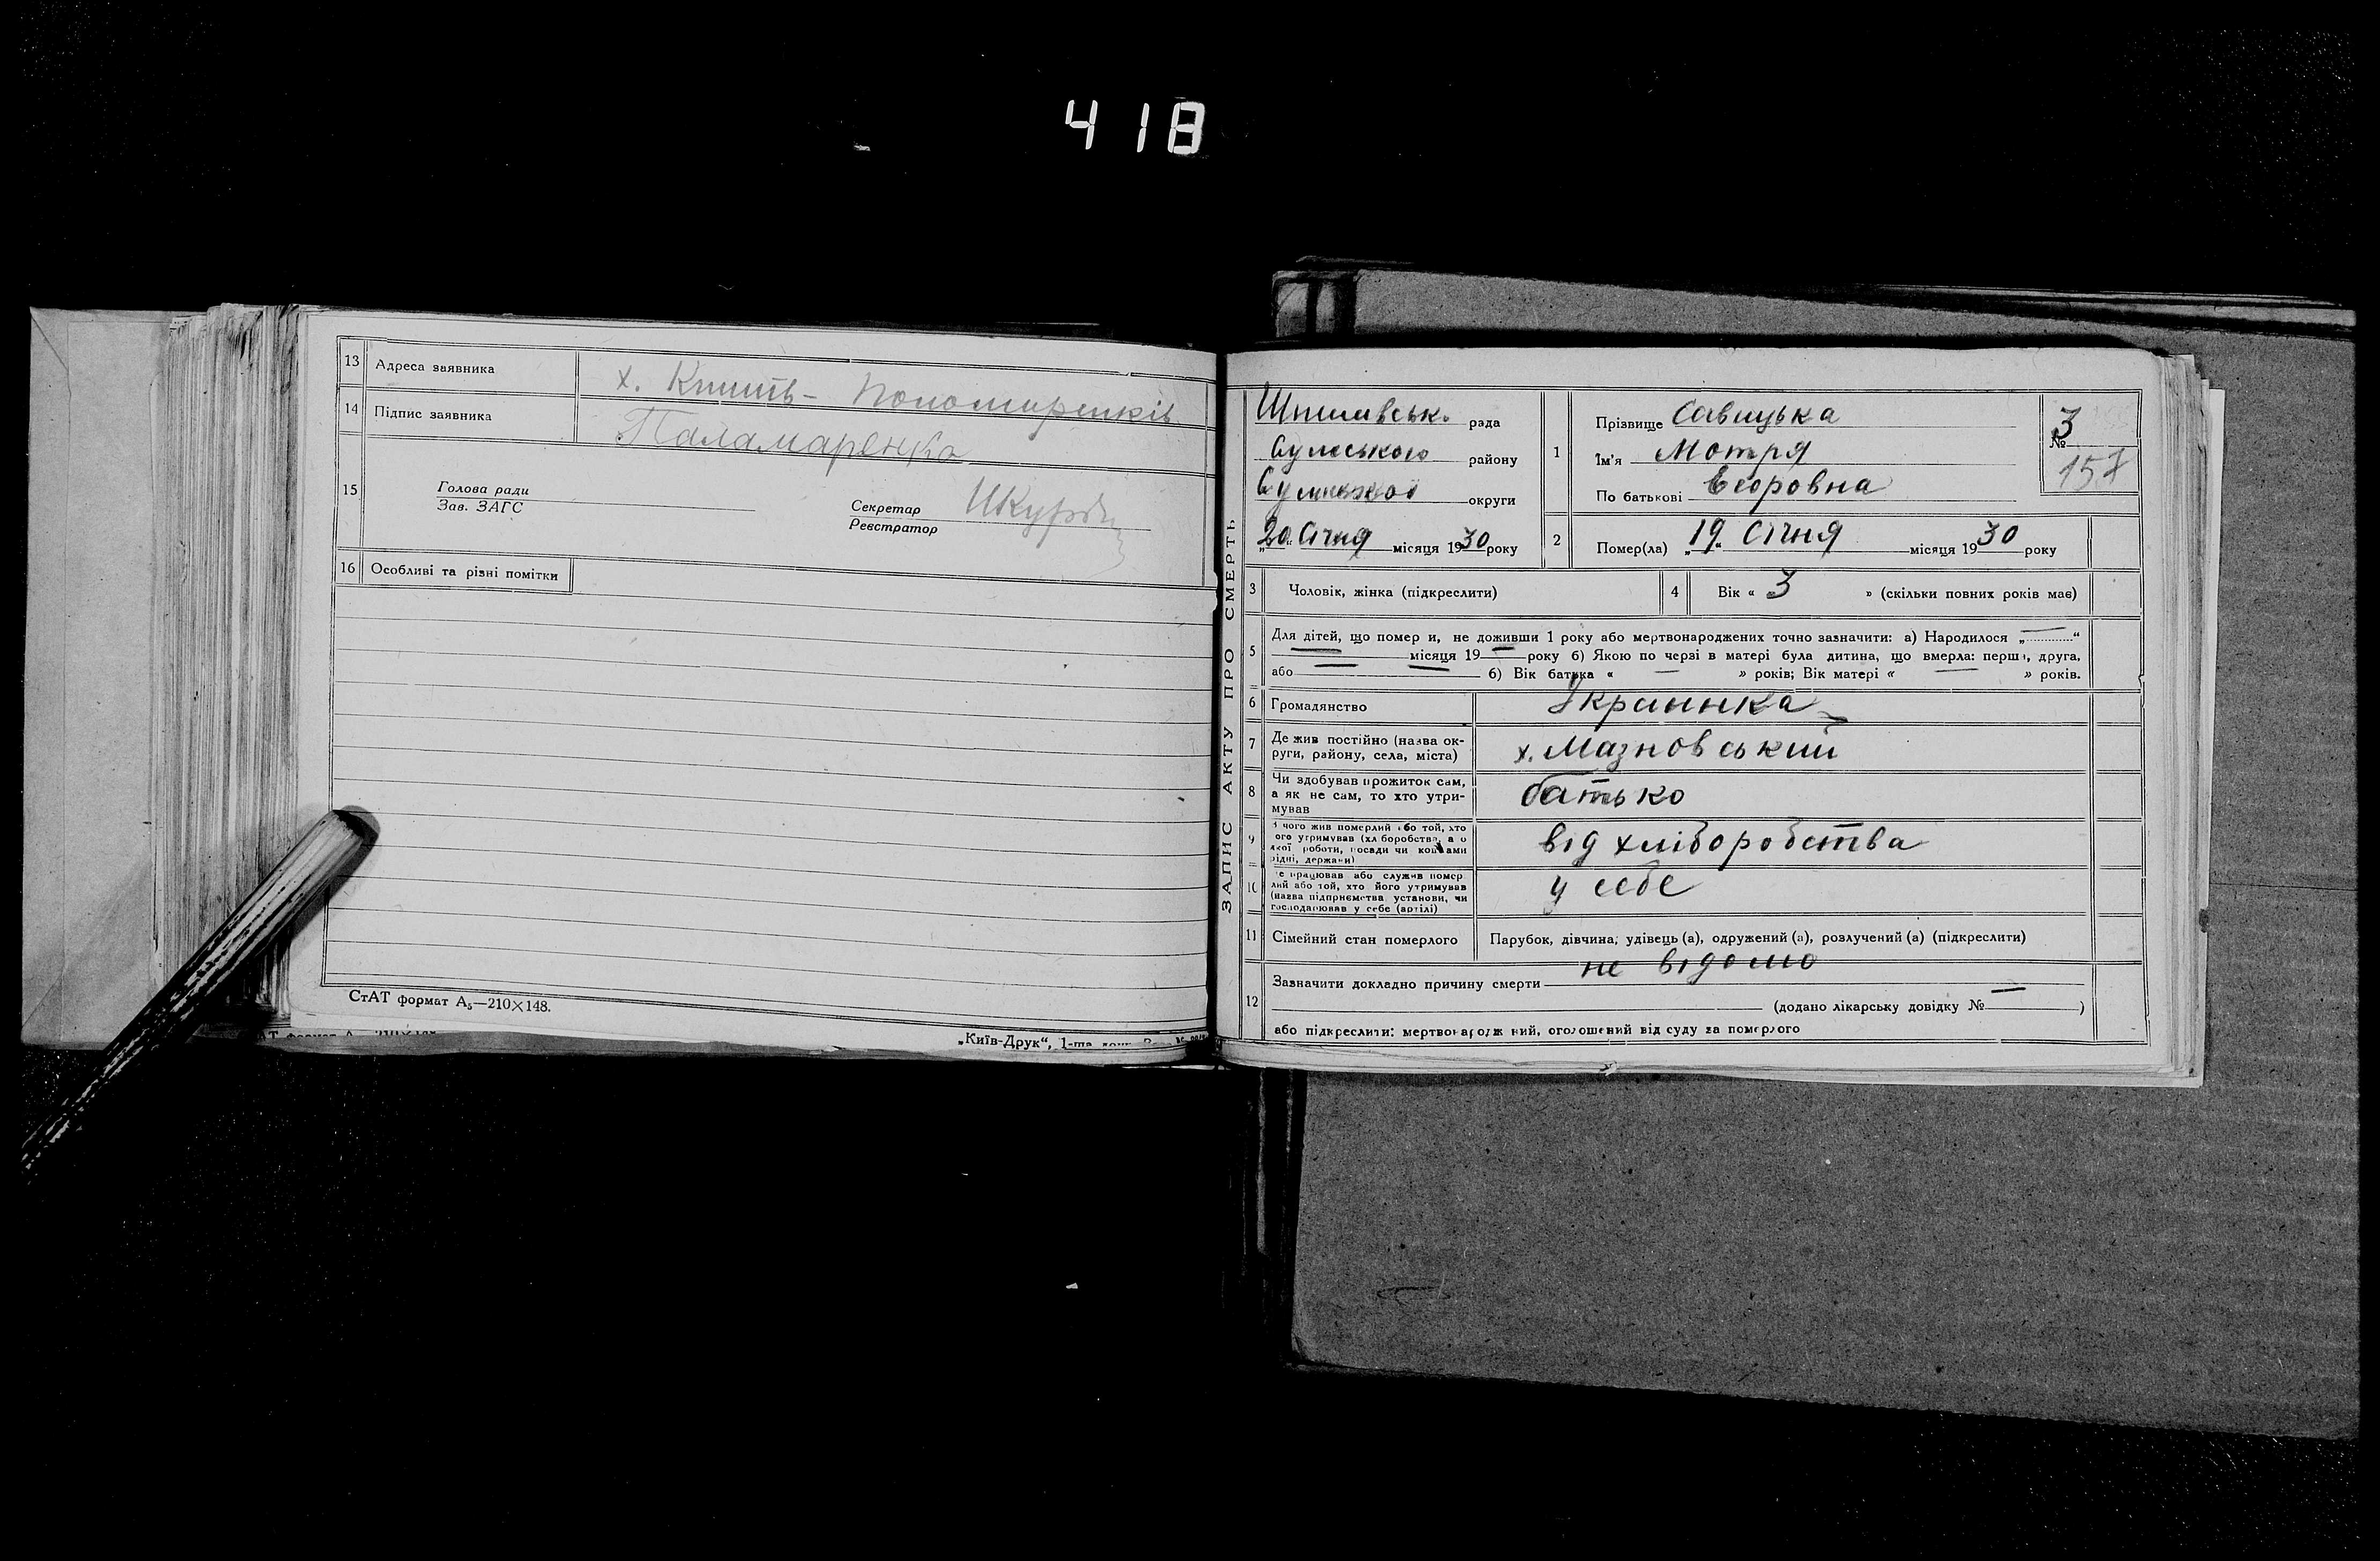 418
13 Адреса заявника х.
14 Підпис заявника Паламаренко
15 Голова ради
Зав. ЗАГС
Секретар
Реєстратор
16 Особливі та різні помітки
СтАТ формат А₅—210×148.
„Київ-Друк“, 1-ша
ЗАПИС АКТУ ПРО СМЕРТЬ
рада
Сумського району
Сумської округи
„20“ Січня місяця 1930 року
1 Прізвище Савицька
Ім'я Мотря
По батькові Егоровна
№ 3
157
2 Помер(ла) „19“ Січня місяця 1930 року
3 Чоловік, жінка (підкреслити)
4 Вік « 3 » (скільки повних років має)
5 Для дітей, що помер и, не доживши 1 року або мертвонароджених точно зазначити: а) Народилося „—“
— місяця 19 — року б) Якою по черзі в матері була дитина, що вмерла: перша, друга,
або — — б) Вік батька « — » років; Вік матері « — » років.
6 Громадянство Украинка
7 Де жив постійно (назва ок-
руги, району, села, міста) х. Мазновський
8 Чи здобував прожиток сам,
а як не сам, то хто утри-
мував батько
9 чого жив померлий або той, хто
ого утримував (хліборобства, а о
якої роботи, посади чи коштами
рідні, держави) від хліборобства
10 е працював або служив помер
лий або той, хто його утримував
(назва підприємства установи, чи
господарював у себе (артілі) у себе
11 Сімейний стан померлого Парубок, дівчина, удівець (а), одружений (а), розлучений (а) (підкреслити)
12 Зазначити докладно причину смерти не відомо
(додано лікарську довідку № — )
або підкреслити: мертвонароджений, оголошений від суду за померлого